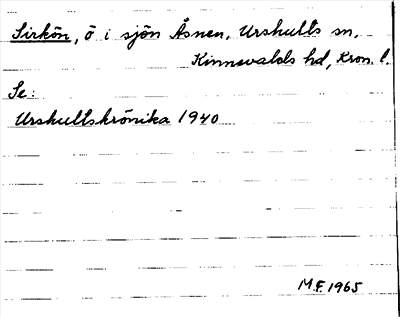 Sirkön, ö i sjön Åsnen, Urshults sn,
Kinnevalds hd, Kron. l.
Se:
Urshultskrönika 1940
M.F. 1965